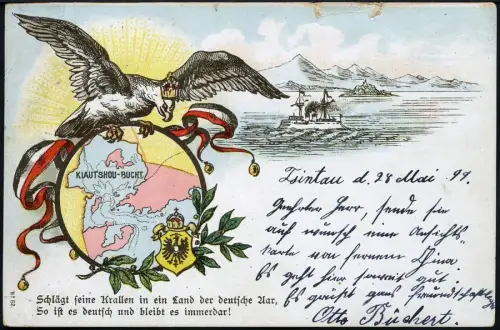 KIAUTSHOU-BUCHT
Tsintau d. 28 Mai 99.
Geehrter Herr, sende sie
auf wunsch eine Ansichts
karte von fernem China
Es geht hier soweit gut
Es grüsst ganz Freundschaftlich
Otto Büchert.
Schlägt seine Krallen in ein Land der deutsche Aar,
So ist es deutsch und bleibt es immerdar!